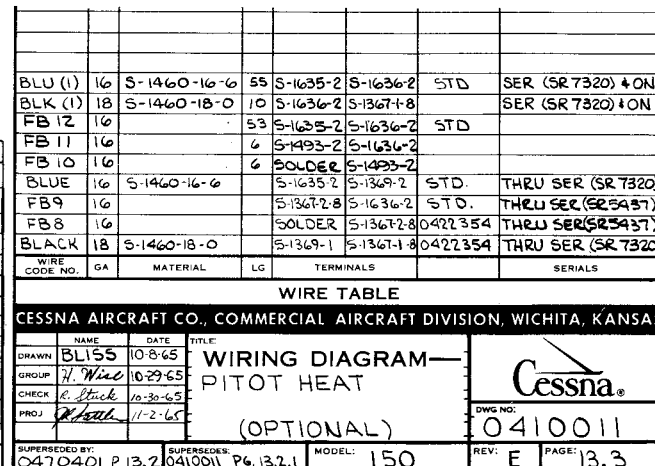 BLU (1) 16 S-1460-16-6 55 S-1635-2 S-1636-2 STD SER (SR 7320) & ON
BLK (1) 18 S-1460-18-0 10 S-1636-2 S-1367-1-8 SER (SR 7320) & ON
FB 12 16 53 S-1635-2 S-1636-2 STD
FB 11 16 6 S-1493-2 S-1636-2
FB 10 16 6 SOLDER S-1493-2
BLUE 16 S-1460-16-6 S-1635-2 S-1369-2 STD. THRU SER (SR 7320)
FB9 16 S-1367-2-8 S-1636-2 STD. THRU SER (SR5437)
FB8 16 SOLDER S-1367-2-8 0422354 THRU SER(SR5437)
BLACK 18 S-1460-18-0 S-1369-1 S-1367-1-8 0422354 THRU SER (SR 7320
WIRE CODE NO. GA MATERIAL LG TERMINALS SERIALS
WIRE TABLE
CESSNA AIRCRAFT CO., COMMERCIAL AIRCRAFT DIVISION, WICHITA, KANSA
NAME DATE
DRAWN BLISS 10-8-65
GROUP H. Wise 10-29-65
CHECK R. Stuck 10-30-65
PROJ 11-2-65
TITLE:
WIRING DIAGRAM—
PITOT HEAT
(OPTIONAL)
Cessna®
DWG NO:
0410011
SUPERSEDED BY: 0470401 P 13.2
SUPERSEDES: 0410011 PG. 13.2.1
MODEL: 150
REV: E
PAGE: 13.3